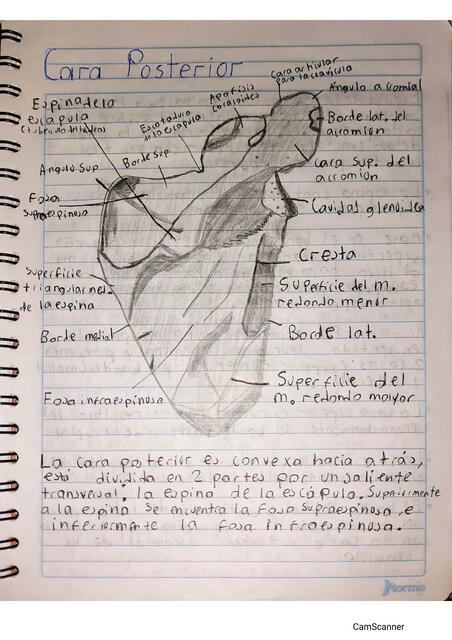 Cara Posterior
Espina de la
escápula
(tubérculo del
Angulo Sup
Fosa
Supraespinosa
Superficie
triangular med.
de la espina
Borde medial
Fosa infraespinosa
Borde Sup
Escotadura
de la escapula
Apofisis
coracoides
Cara articular
para la clavicula
Angulo acromial
Borde lat. del
acromion
Cara Sup. del
acromion
Cavidad glenoidea
Cresta
Superficie del m.
redondo menor
Borde lat.
Superficie del
m. redondo mayor
La cara posterior es convexa hacia atrás,
está dividida en 2 partes por un saliente
transversal: la espina de la escápula. Superiormente
a la espina se encuentra la fosa supraespinosa, e
inferiormente la fosa infraespinosa.
Norma
CamScanner